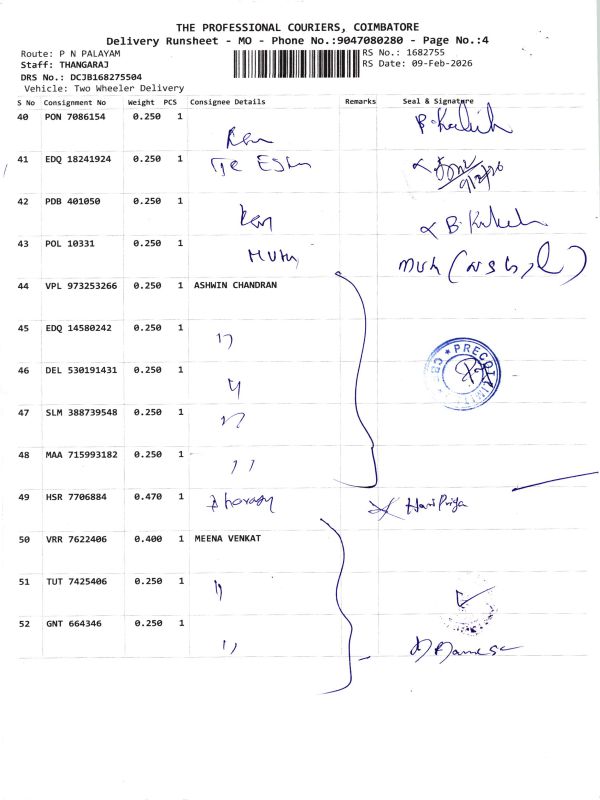 THE PROFESSIONAL COURIERS, COIMBATORE
Delivery Runsheet - MO - Phone No.:9047080280 - Page No.:4
Route: P N PALAYAM RS No.: 1682755
Staff: THANGARAJ RS Date: 09-Feb-2026
DRS No.: DCJB168275504
Vehicle: Two Wheeler Delivery
S No Consignment No Weight PCS Consignee Details Remarks Seal & Signature
40 PON 7086154 0.250 1
41 EDQ 18241924 0.250 1
42 PDB 401050 0.250 1
43 POL 10331 0.250 1
44 VPL 973253266 0.250 1 ASHWIN CHANDRAN
45 EDQ 14580242 0.250 1 "
46 DEL 530191431 0.250 1 "
PRECOT
47 SLM 388739548 0.250 1 "
48 MAA 715993182 0.250 1 "
49 HSR 7706884 0.470 1 HariPriya
50 VRR 7622406 0.400 1 MEENA VENKAT
51 TUT 7425406 0.250 1 "
52 GNT 664346 0.250 1 "